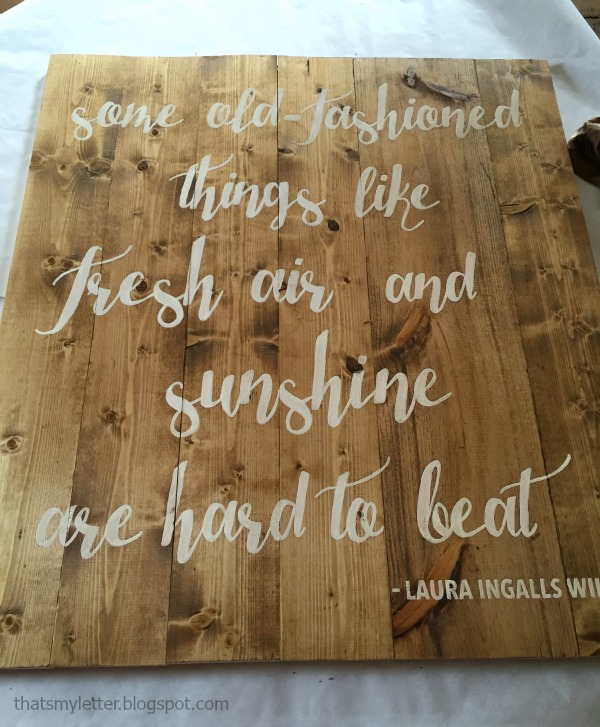 some old-fashioned
things like
fresh air and
sunshine
are hard to beat
- LAURA INGALLS WIL
thatsmyletter.blogspot.com